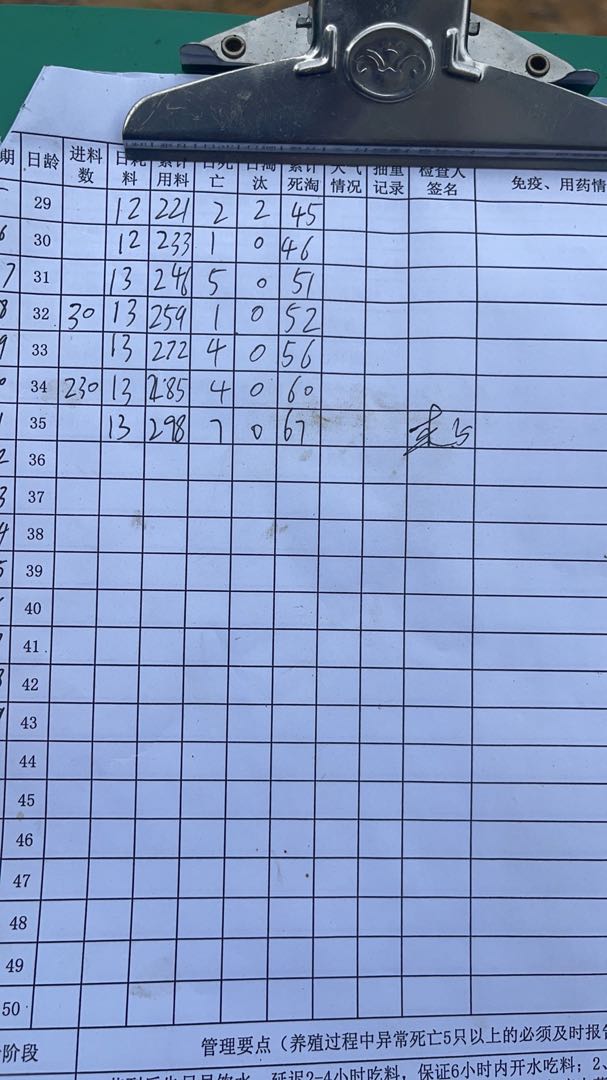 期 日龄 进料数 日耗料 累计用料 日死亡 日淘汰 累计死淘 天气情况 抽重记录 检查人签名 免疫、用药情
29 12 221 2 2 45
6 30 12 233 1 0 46
7 31 13 246 5 0 51
8 32 30 13 259 1 0 52
9 33 13 272 4 0 56
0 34 230 13 285 4 0 60
1 35 13 298 7 0 67
2 36
3 37
4 38
5 39
40
41
42
43
44
45
46
47
48
49
50
阶段 管理要点（养殖过程中异常死亡5只以上的必须及时报告
延迟2-4小时吃料，保证6小时内开水吃料；2、